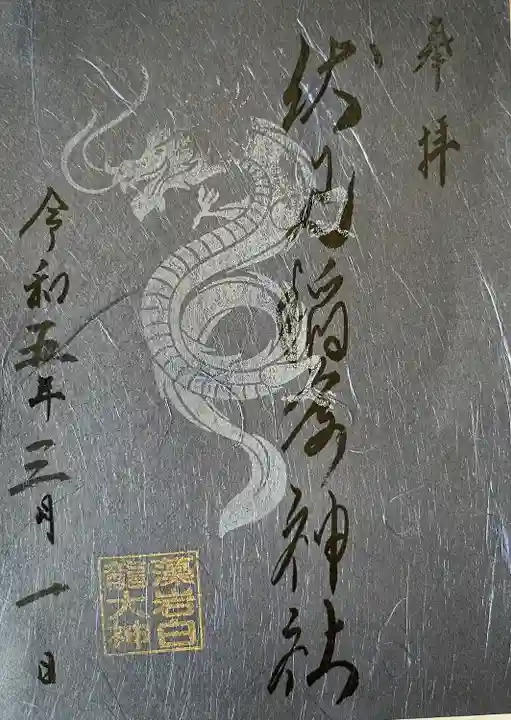 奉拝
伏見稲荷神社
岩白
龍大神
令和五年三月一日